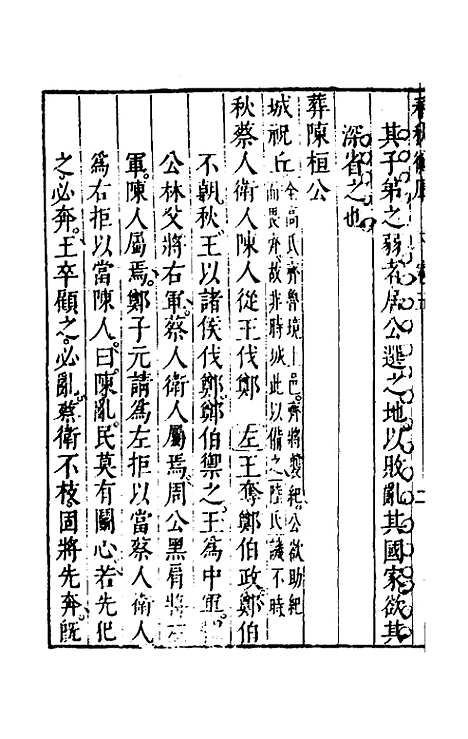 其子弟之弱者居公選之地以敗亂其國家欲其
深省之也
葬陳桓公
城祝丘 全高氏齊魯境上邑齊將襲紀公欲助紀
而畏齊故非時城此以備之陸氏議不時
秋蔡人衛人陳人從王伐鄭 左王奪鄭伯政鄭伯
不朝秋王以諸侯伐鄭鄭伯禦之王為中軍虢
公林父將右軍蔡人衛人屬焉周公黑肩將左
軍陳人屬焉鄭子元請為左拒以當蔡人衛人
為右拒以當陳人曰陳亂民莫有鬭心若先犯
之必奔王卒顧之必亂蔡衛不枝固將先奔既